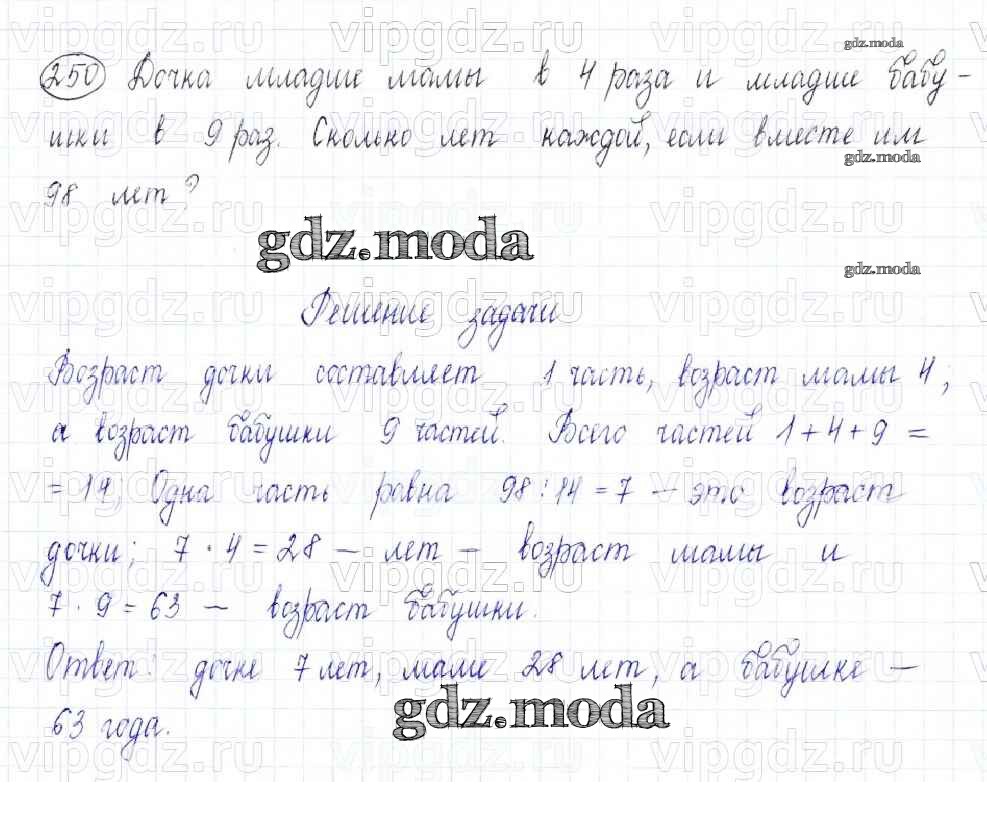 250 Дочка младше мамы в 4 раза и младше бабу-
шки в 9 раз. Сколько лет каждой, если вместе им
98 лет?
gdz.moda
gdz.moda
gdz.moda
gdz.moda
Решение задачи
Возраст дочки составляет 1 часть, возраст мамы 4;
а возраст бабушки 9 частей. Всего частей 1+4+9 =
= 14; Одна часть равна 98:14 = 7 – это возраст
дочки; 7 · 4 = 28 – лет – возраст мамы и
7 · 9 = 63 – возраст бабушки.
Ответ: дочке 7 лет, маме 28 лет, а бабушке –
63 года.
gdz.moda
vipgdz.ru